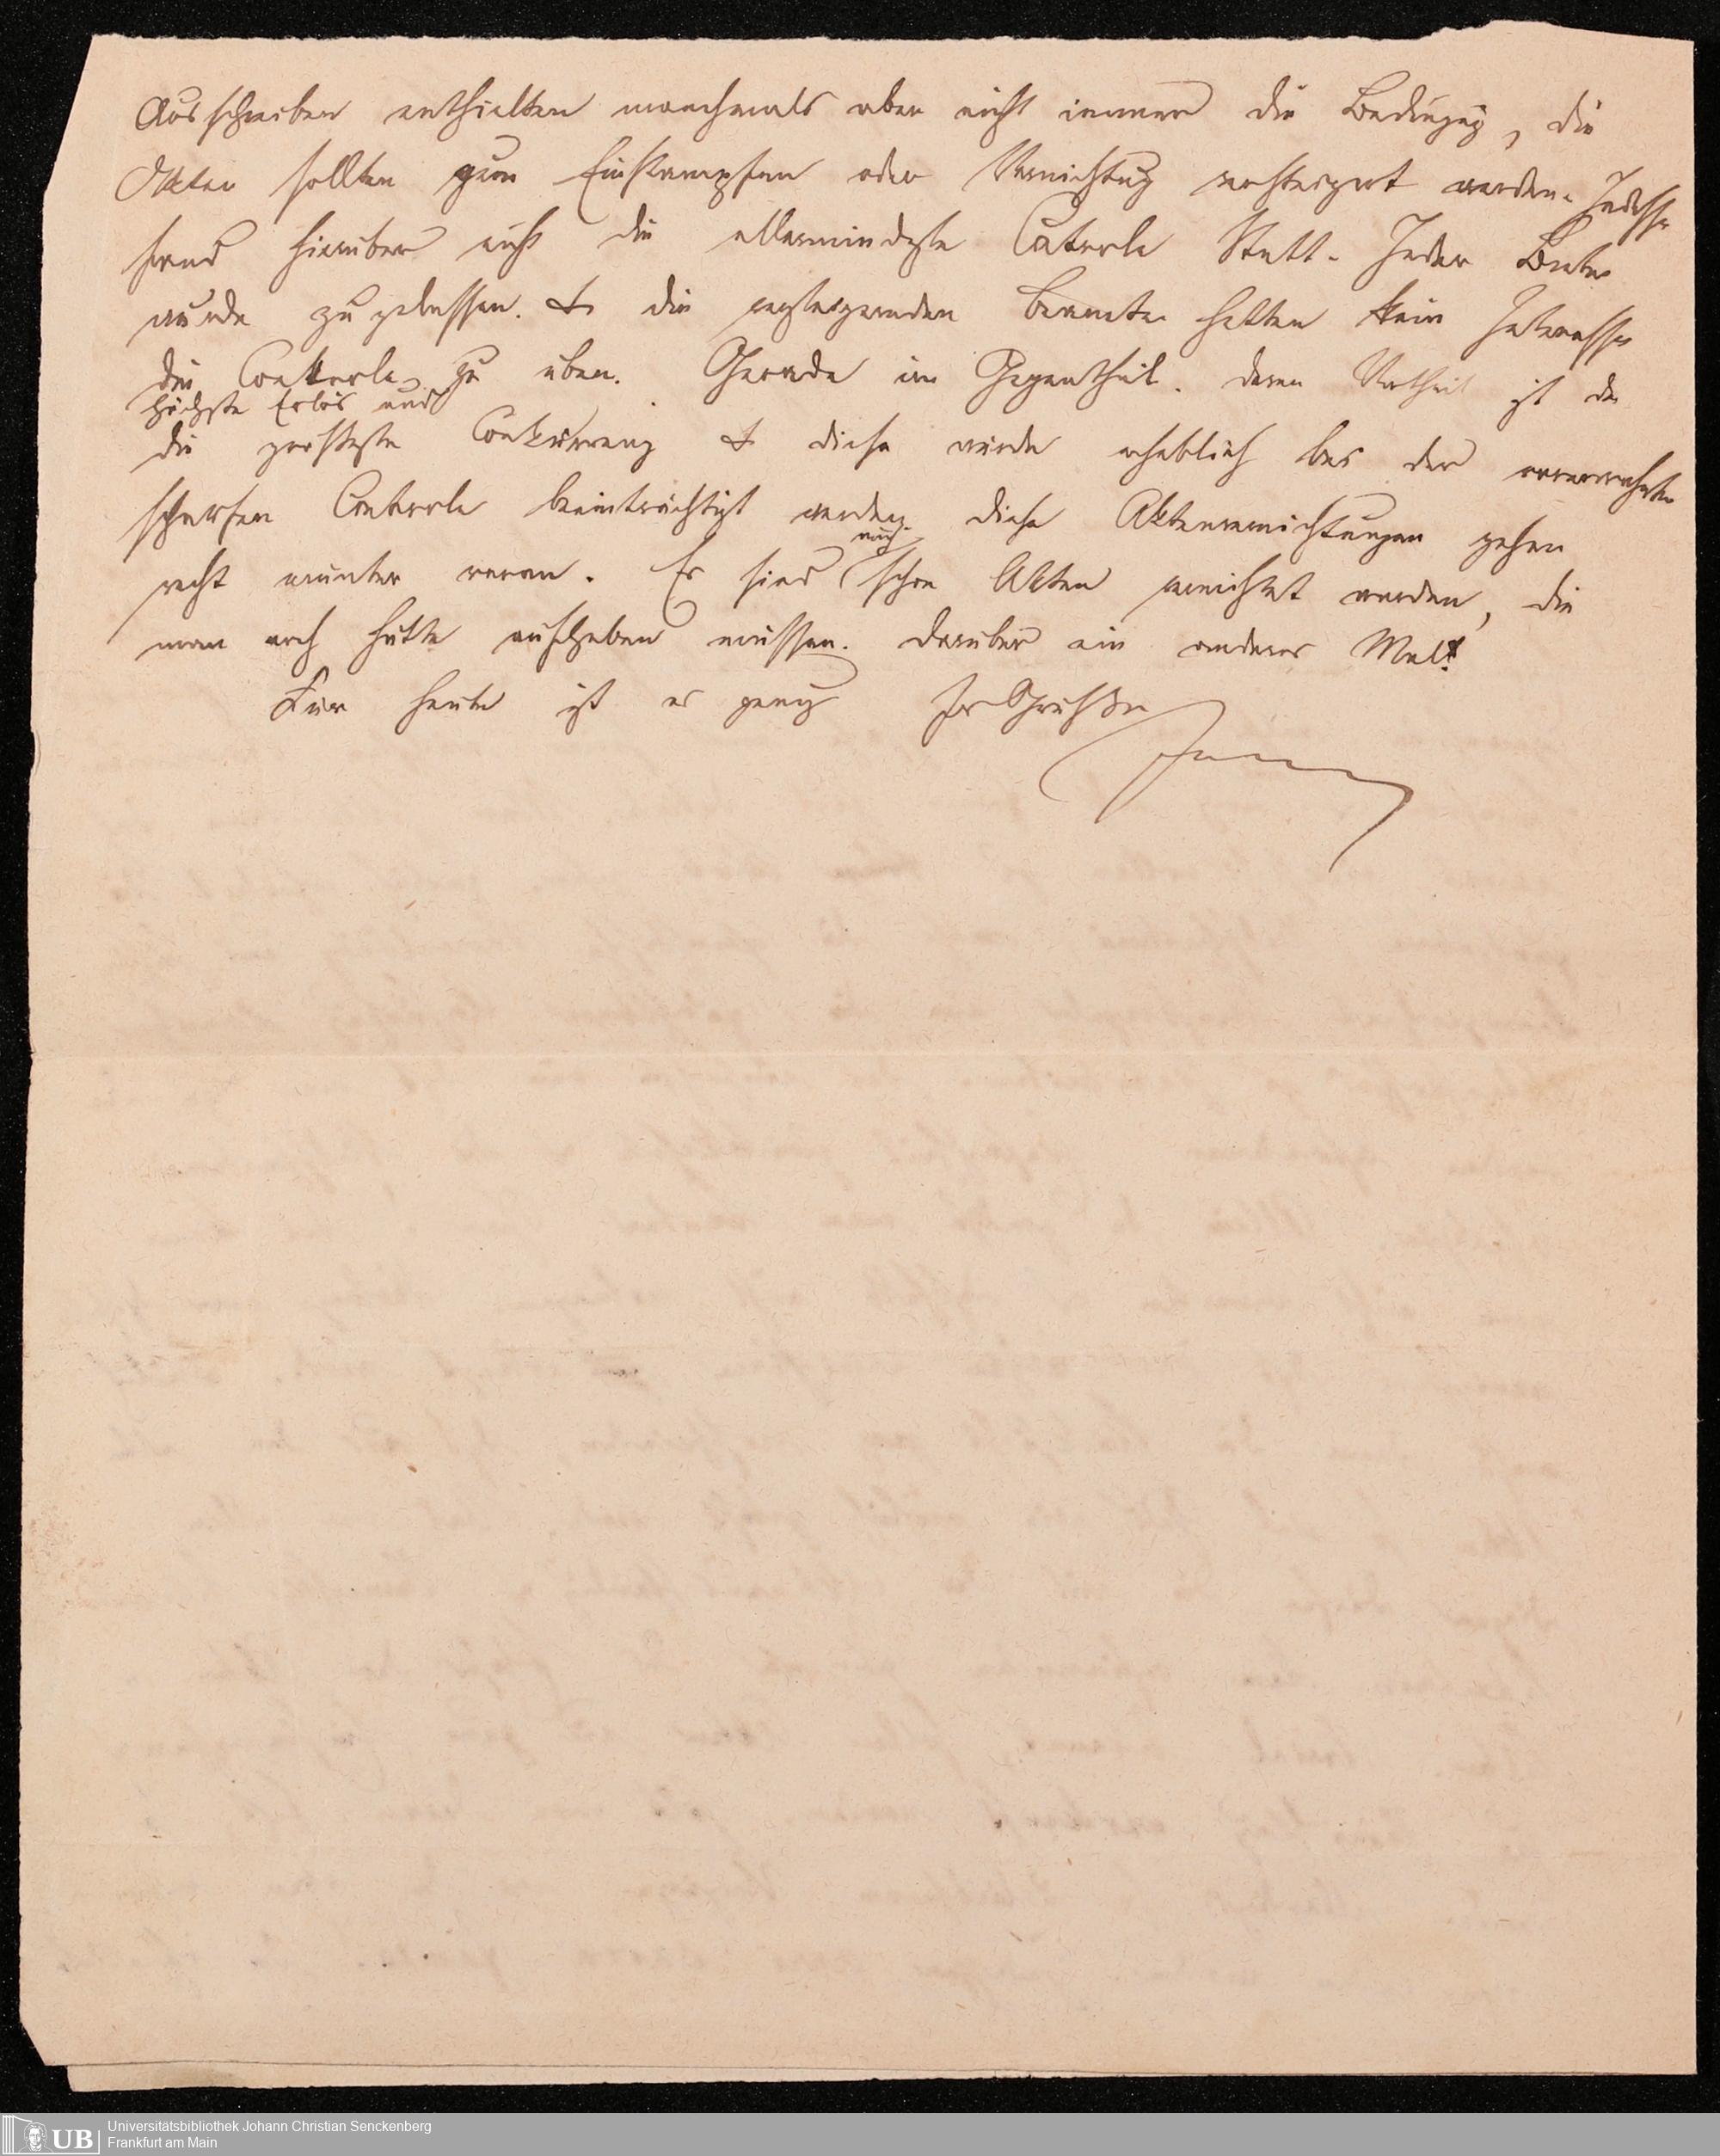 Ausschreiben enthielten manchmals aber nicht immer die Bedingung, die
Akten sollten zum Einstampfen oder Vernichtung versteigert werden. Indessen
fand hierüber nicht die allermindeste Controle Statt. Jeder Bieter
wurde zugelassen. & die versteigernden Beamten hatten kein Interesse
die Controle zu üben. Gerade im Gegentheil. deren Vortheil ist der
höchste Erlös und
die grösste Conkurrenz & diese würde erheblich bei der vorerwähnten
scharfen Controle beeinträchtigt werden. diese Aktenvernichtungen gehen
recht munter voran. Es sind auch schon Akten vernichtet worden, die
man noch hätte aufheben müssen. darüber ein anderes Mal!
Für heute ist es genug
Universitätsbibliothek Johann Christian Senckenberg
Frankfurt am Main
UB